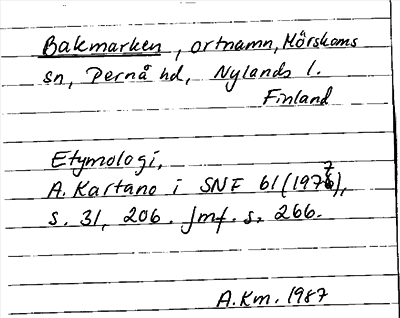 Bakmarken, ortnamn, Mörskoms
sn, Pernå hd, Nylands l.
Finland
Etymologi,
A. Kartano i SNF 61 (1977),
s. 31, 206. Jmf. s. 266.
A.Km. 1987